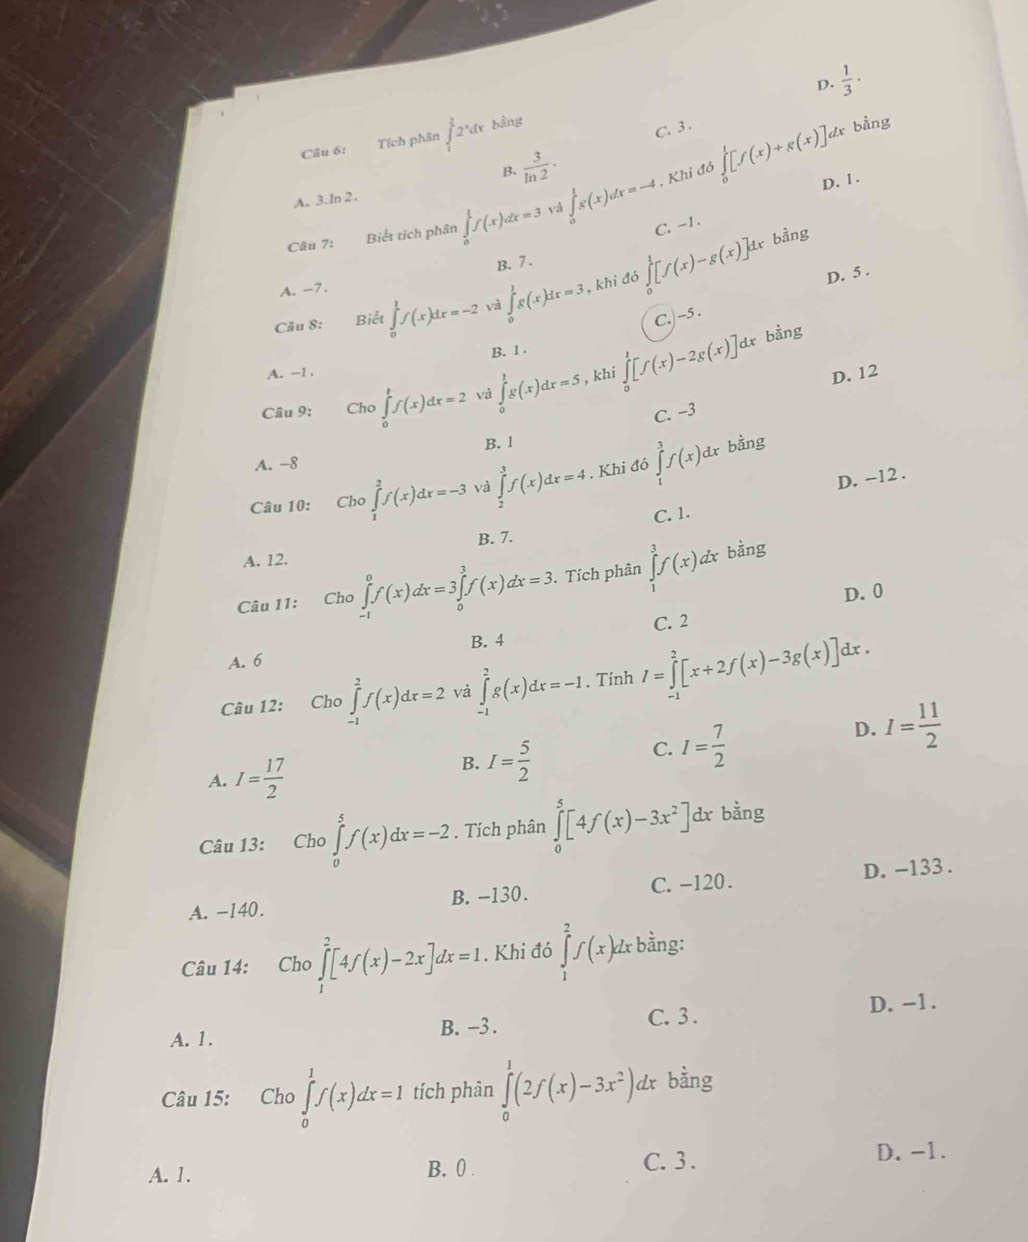 Câu 6: Tích phân ∫₁ 2ˣdx bằng
A. 3.ln 2. B. 3/ln 2. C. 3. D. 1/3.
Câu 7: Biết tích phân ∫₀¹ f(x)dx = 3 và ∫₀¹ g(x)dx = −4. Khi đó ∫₀¹ [f(x)+g(x)]dx bằng
A. −7. B. 7. C. −1. D. 1.
Câu 8: Biết ∫₀¹ f(x)dx = −2 và ∫₀¹ g(x)dx = 3, khi đó ∫₀¹ [f(x)−g(x)]dx bằng
A. −1. B. 1. C. −5. D. 5.
Câu 9: Cho ∫₀¹ f(x)dx = 2 và ∫₀¹ g(x)dx = 5, khi ∫₀¹ [f(x)−2g(x)]dx bằng
A. −8 B. 1 C. −3 D. 12
Câu 10: Cho ∫₁² f(x)dx = −3 và ∫₂³ f(x)dx = 4. Khi đó ∫₁³ f(x)dx bằng
A. 12. B. 7. C. 1. D. −12.
Câu 11: Cho ∫₋₁⁰ f(x)dx = 3∫₀³ f(x)dx = 3. Tích phân ∫₁³ f(x)dx bằng
A. 6 B. 4 C. 2 D. 0
Câu 12: Cho ∫₋₁² f(x)dx = 2 và ∫₋₁² g(x)dx = −1. Tính I = ∫₋₁² [x+2f(x)−3g(x)]dx.
A. I = 17/2 B. I = 5/2 C. I = 7/2 D. I = 11/2
Câu 13: Cho ∫₀⁵ f(x)dx = −2. Tích phân ∫₀⁵ [4f(x)−3x²]dx bằng
A. −140. B. −130. C. −120. D. −133.
Câu 14: Cho ∫₁² [4f(x)−2x]dx = 1. Khi đó ∫₁² f(x)dx bằng:
A. 1. B. −3. C. 3. D. −1.
Câu 15: Cho ∫₀¹ f(x)dx = 1 tích phân ∫₀¹ (2f(x)−3x²)dx bằng
A. 1. B. 0. C. 3. D. −1.